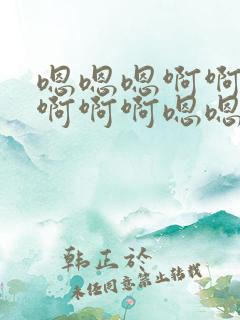 嗯嗯嗯啊啊
啊啊啊嗯嗯
韩正於
未经同意禁止转载